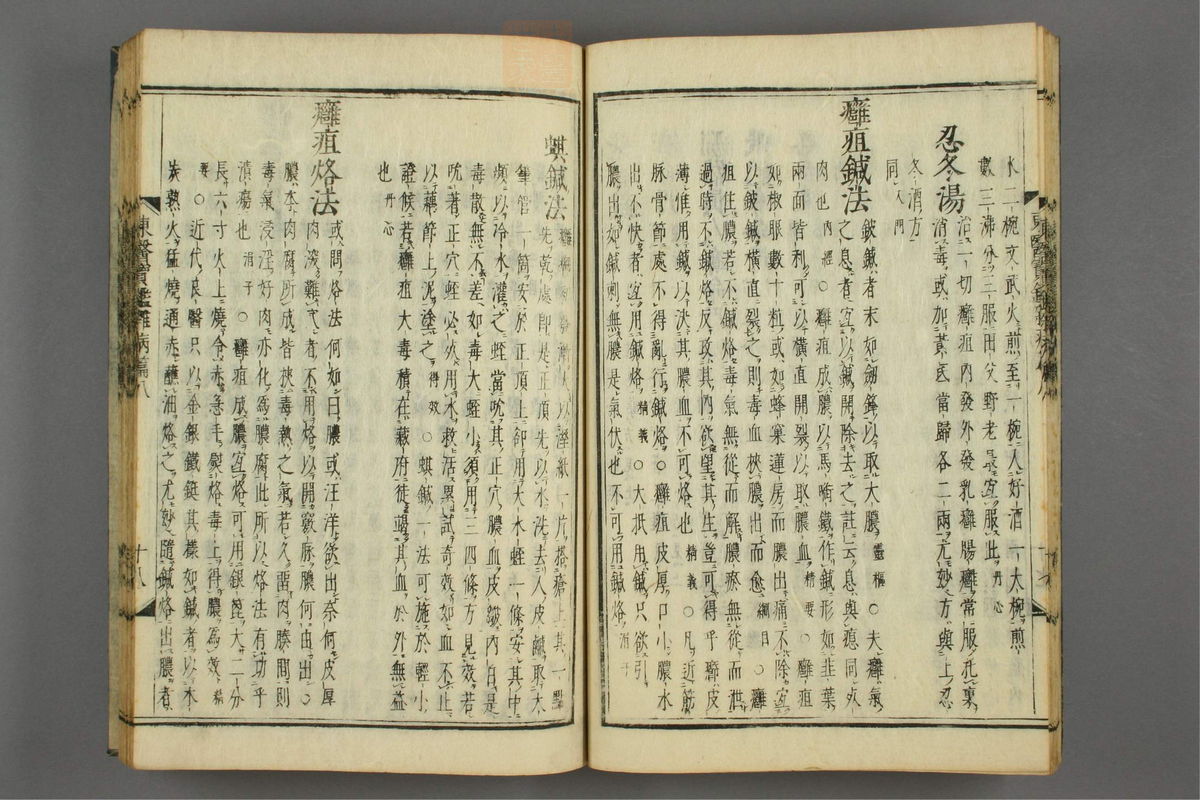 水二椀文武火煎至一椀入好酒一大椀煎
數三沸分三服田父野老最宜服此 丹心
忍冬湯 治一切癰疽內發外發乳癰腸癰常服
消毒或加黃芪當歸各二兩尤妙方與上忍
冬酒方
同 入門
癰疽鍼法 鈹鍼者末如劍鋒以取大膿 靈樞 ○夫癰氣
之息者宜以鍼開除去之註云息與瘜同死
肉也 內經 ○癰疽成膿以馬啣鐵作鍼形如韭葉
兩面皆利可以橫直開裂以取膿血 精要 ○癰疽
如椒眼數十粒或如蜂窠蓮房而膿出痛不除宜
以鈹鍼橫直裂之則毒血挾膿出而愈 綱目 ○癰
疽作膿若不鍼烙毒氣無從而解膿瘀無從而泄
過時不鍼烙反攻其內欲望其生豈可得乎癰皮
薄惟用鍼以決其膿血不可烙也 精義 ○凡近筋
脉骨節處不得亂行鍼烙○癰疽皮厚口小膿水
出不快者宜用鍼烙 精義 ○大抵用鍼只欲引
膿出如鍼刺無膿是氣伏也不可用鍼烙 涓子
蜞鍼法 癰癤 以濕紙一片搭瘡上其一點
先乾處卽是正頂先以水洗去人皮鹹取大
筆管一筒安於正頂上却用大水蛭一條安其中
頻以冷水灌之蛭當吮其正穴膿血皮皺內白是
毒散無不差如毒大蛭小須用三四條方見效若
吮着正穴蛭必死用水救活累試奇效如血不止
以藕節上泥塗之 得效 ○蜞鍼一法可施於輕小
證候若癰疽大毒積在藏府徒竭其血於外無益
也 丹心
癰疽烙法 或問烙法何如曰膿或汪洋欲出奈何皮厚
肉深難穿者不用烙以開竅豚膿何由出○
膿水肉腐所成皆挾毒熱之氣若久留肉腠間則
毒氣浸淫好肉亦化爲膿腐此所以烙法有功乎
潰瘍也 涓子 ○癰疽成膿宜烙可用銀篦大二分
長六寸火上燒令赤急手熨烙毒上得膿爲效 精
要 ○近代良醫只以金銀鐵鋌其樣如鍼者以木
炭熟火猛燒通赤蘸油烙之尤妙隨鍼烙出膿者
東醫寶鑑雜病篇八
十八